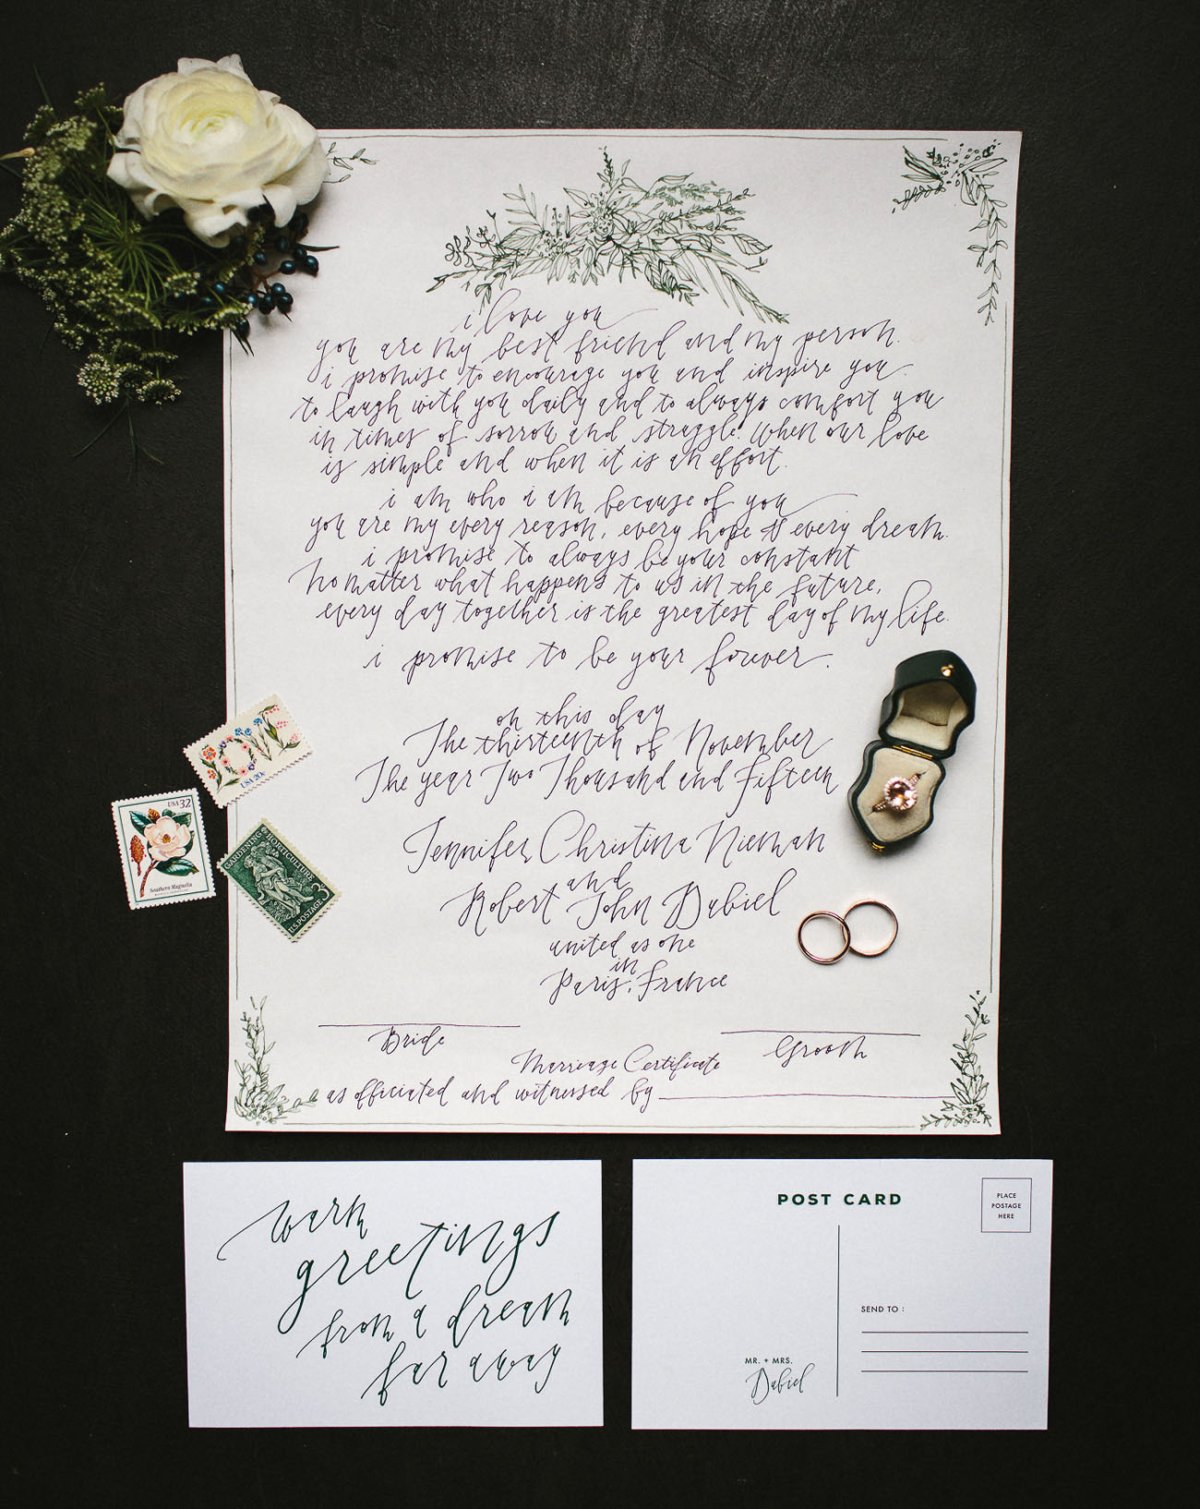 i love you
you are my best friend and my person.
i promise to encourage you and inspire you.
to laugh with you daily and to always comfort you
in times of sorrow and struggle. When our love
is simple and when it is an effort.
i am who i am because of you
you are my every reason, every hope & every dream.
i promise to always be your constant
no matter what happens to us in the future,
every day together is the greatest day of my life.
i promise to be your forever.
on this day
The thirteenth of November
The year Two Thousand and Fifteen
Jennifer Christina Nieman
and
Robert John Dabiel
united as one
in
Paris, France
Bride
Groom
Marriage Certificate
as officiated and witnessed by
LOVE
USA 20c
USA 32
Southern Magnolia
GARDENING HORTICULTURE
3¢
U.S. POSTAGE
warm
greetings
from a dream
far away
POST CARD
PLACE
POSTAGE
HERE
SEND TO :
MR. + MRS.
Dabiel